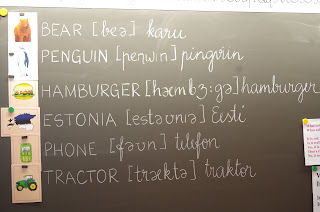 BEAR [beə] karu
PENGUIN [peŋwin] pingviin
HAMBURGER [hæmbɜ:gə] hamburger
ESTONIA [estəʊniə] Eesti
PHONE [fəʊn] telefon
TRACTOR [træktə] traktor